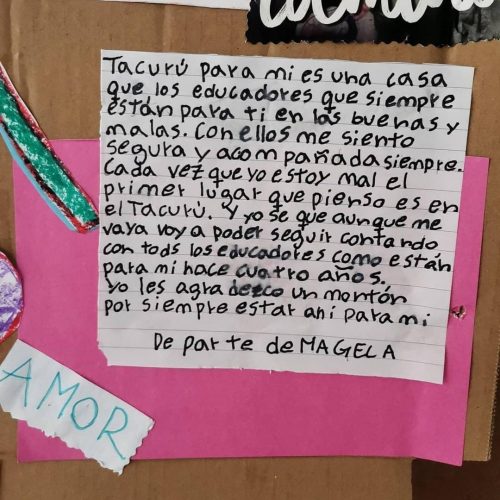 Tacurú para mi es una casa
que los educadores que siempre
están para ti en las buenas y
malas. Con ellos me siento
segura y acompañada siempre.
Cada vez que yo estoy mal el
primer lugar que pienso es en
el Tacurú. Y yo se que aunque me
vaya voy a poder seguir contando
con tods los educadores como están
para mi hace cuatro años.
yo les agradezco un montón
por siempre estar ahí para mi
De parte de MAGELA
AMOR